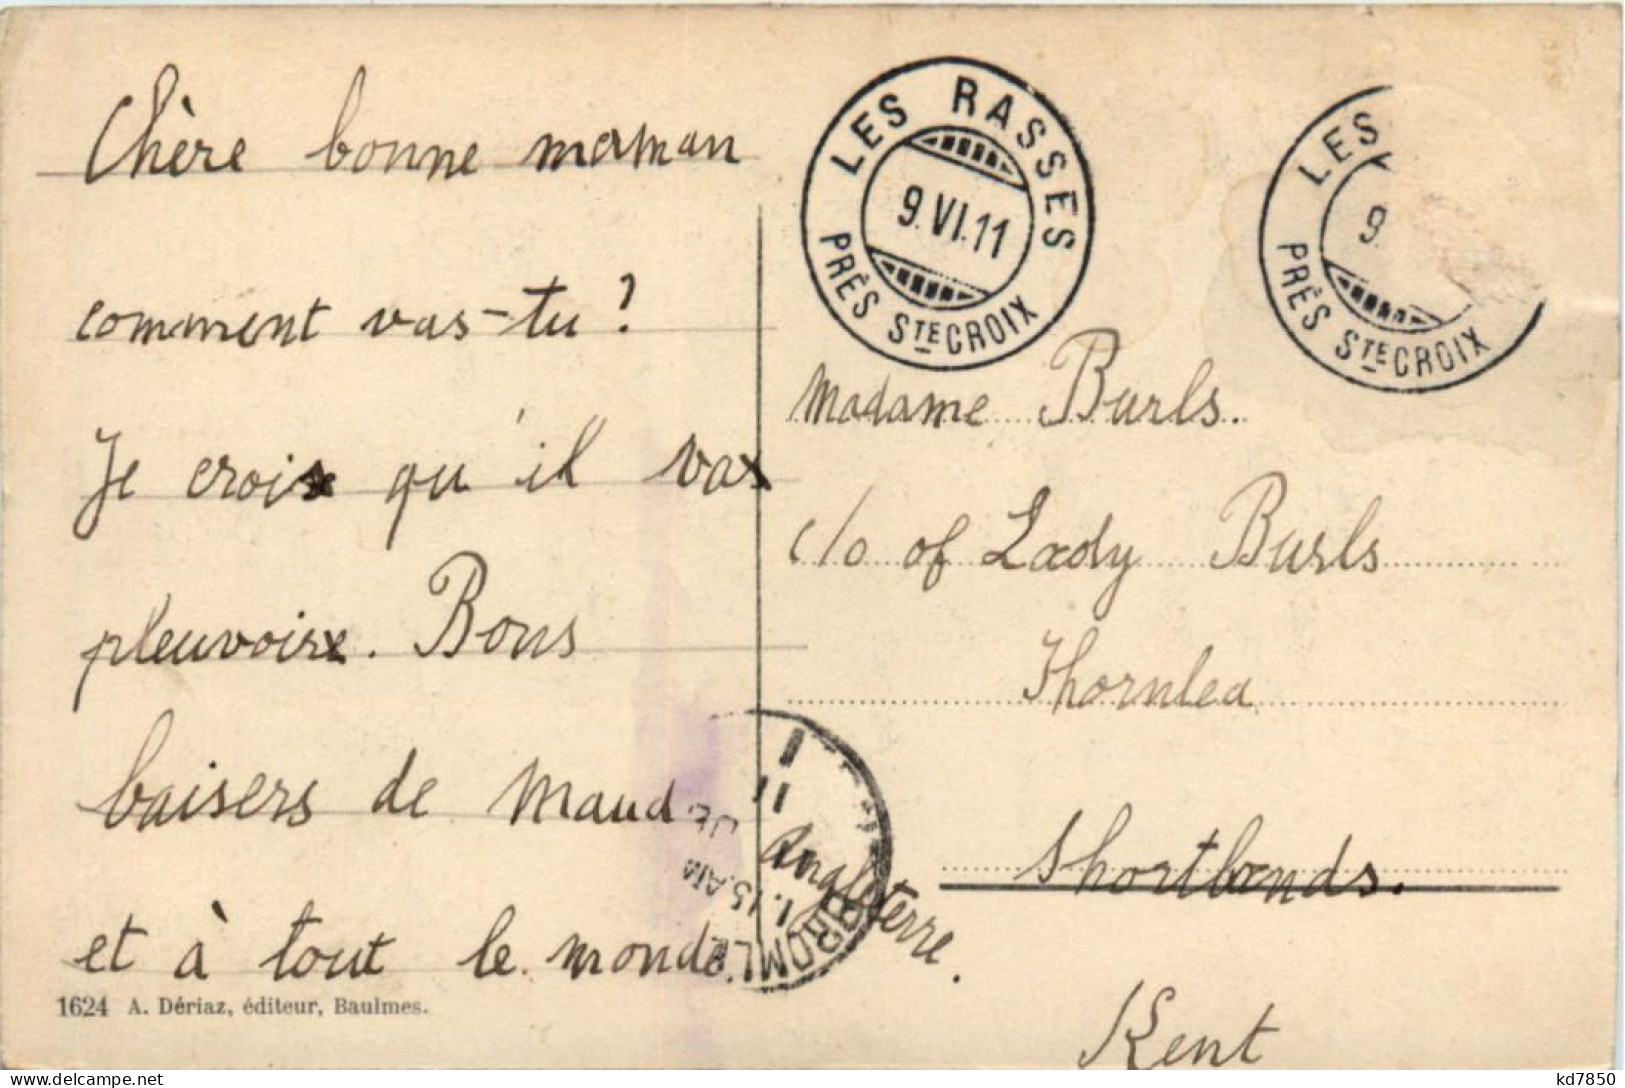 Chère bonne maman
comment vas-tu?
Je crois qu'il va
pleuvoire. Bons
baisers de Maud
et à tout le monde.
1624 A. Dériaz, éditeur, Baulmes.
LES RASSES
9.VI.11
PRÈS STE CROIX
LES
9
PRÈS STE CROIX
Madame Burls.
c/o of Lady Burls
Thornlea
Shortlands.
Angleterre.
Kent
BROML
1.15.AM
11
kd7850